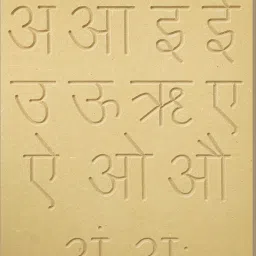 अ आ इ ई
उ ऊ ऋ ए
ऐ ओ औ
अं अः